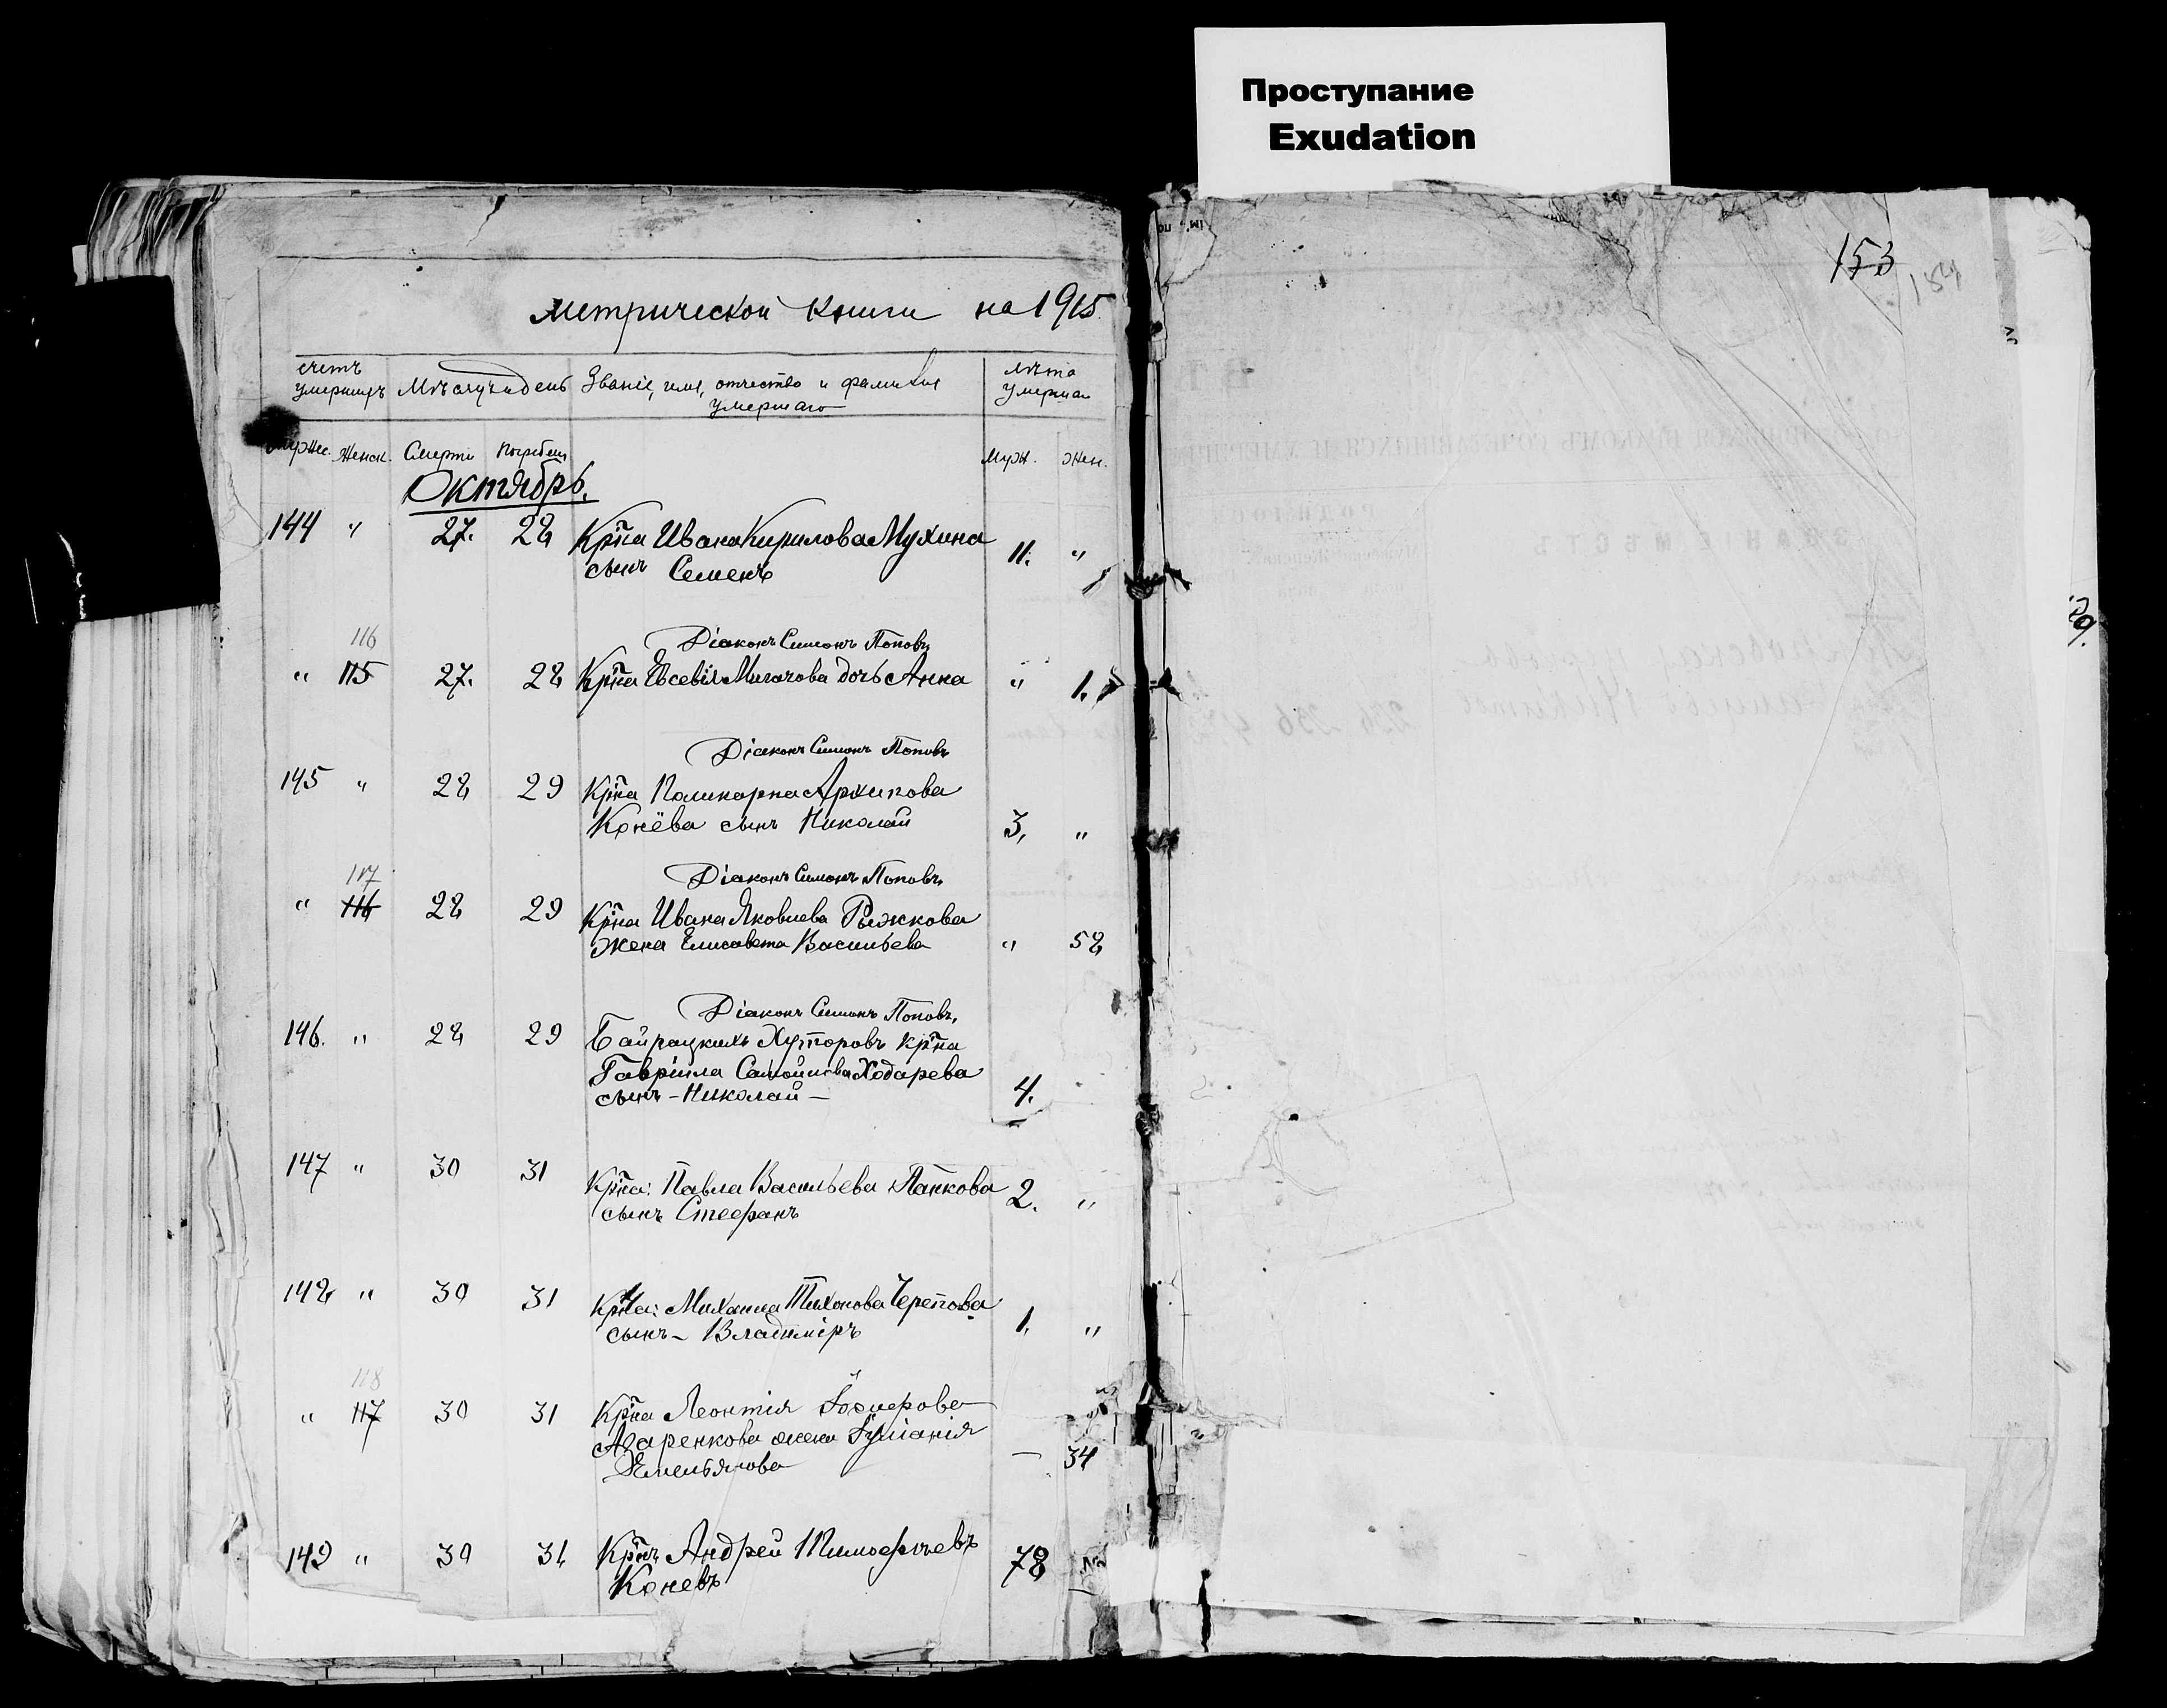 Проступание
Exudation
153
154
метрической книги на 1915.
счетъ умершихъ Мѣсяцъ и день Званіе, имя, отчество и фамилія умершаго лѣта умершаго
Мужес. Женск. Смерти Погребен Муж. Жен.
Октябрь.
144 " 27. 28 Крⷭ҇на Ивана Кирилова Мухина
сынъ Семенъ 11. "
116
Діаконъ Симонъ Поповъ
" 115 27. 28 Кр-на Евсевія Мигачова дочь Анна " 1.
Діаконъ Симонъ Поповъ
145 " 28 29 Кр-на Поликарпа Архипова
Конёва сынъ Николай 3, "
117
Діаконъ Симонъ Поповъ
" 116 28 29 Кр-на Ивана Яковлева Рыжкова
жена Елисавета Васильева " 58
Діаконъ Симонъ Поповъ,
146. " 28 29 Байрацкихъ Хуторовъ кр-на
Гавріила Самойлова Ходарева
сынъ - Николай - 4.
147 " 30 31 Кр-на: Павла Васильева Панкова 2. "
сынъ Стефанъ
148 " 30 31 Кр-на: Михаила Тихонова Черепова
сынъ - Владиміръ 1. "
118
" 117 30 31 Кр-на Леонтія
Азаренкова жена Іуліанія
Емельянова — 34
149 " 30 31 Кр-нъ Андрей Тимофѣевъ
Коневъ 78